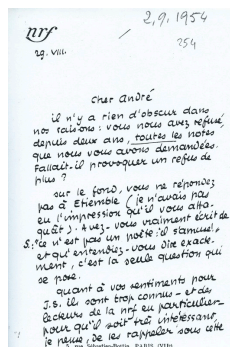 nrf
2.9.1954
254
29.VIII.
cher André
il n'y a rien d'obscur dans
nos raisons : vous nous avez refusé,
depuis deux ans, toutes les notes
que nous vous avons demandées.
Fallait-il provoquer un refus de
plus ?
sur le fond, vous ne répondez
pas à Etiemble (je n'avais pas
eu l'impression qu'il vous atta-
quât). Avez-vous vraiment écrit de
S. : "ce n'est pas un poète : il s'amuse",
et qu'entendiez-vous dire exacte-
ment, c'est la seule question qui
se pose.
quant à vos sentiments pour
J.S. ils sont trop connus - et des
lecteurs de la nrf en particulier -
pour qu'il soit très intéressant,
je pense, de les rappeler sous cette
5, rue Sébastien-Bottin, PARIS (VIIe)